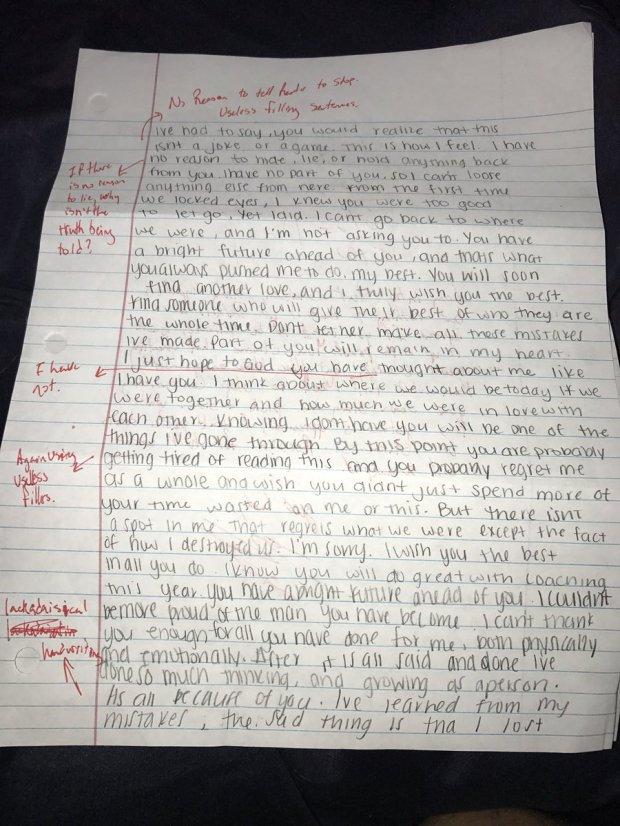 No Reason to tell reader to stop.
Useless filling sentences.
Ive had to say, you would realize that this
isnt a joke or a game. This is how I feel. I have
no reason to hide, lie, or hold anything back
from you. I have no part of you, so I cant loose
anything else from here. From the first time
we locked eyes, I knew you were too good
to let go, yet I did. I cant go back to where
we were, and I'm not asking you to. You have
a bright future ahead of you, and thats what
you always pushed me to do, my best. You will soon
find another love, and I truly wish you the best.
Find someone who will give their best of who they are
the whole time. Dont let her make all these mistakes
Ive made. Part of you will remain in my heart.
I just hope to God you have thought about me like
I have you. I think about where we would be today if we
were together and how much we were in love with
each other. Knowing I dont have you will be one of the
things I've gone through. By this point you are probably
getting tired of reading this and you probably regret me
as a whole and wish you didnt just spend more of
your time wasted on me or this. But there isnt
a spot in me that regrets what we were except the fact
of how I destroyed us. I'm sorry. I wish you the best
in all you do. I know you will do great with coaching
this year. You have a bright future ahead of you. I couldn't
be more proud of the man you have become. I cant thank
you enough for all you have done for me, both physically
and emotionally. After it is all said and done Ive
done so much thinking, and growing as a person.
Its all because of you. Ive learned from my
mistakes, the sad thing is tha I lost
If there
is no reason
to lie, why
isn't the
truth being
told?
I have
not.
Again Using
Useless
fillers.
lackadaisical
handwriting